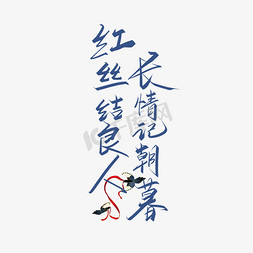 红丝结良人
长情记朝暮